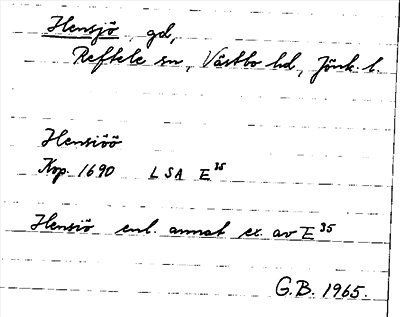 Hensjö, gd,
Reftele sn, Västbo hd, Jönk. l.
Hensiöö
Kop. 1690 LSA E 35
Hensiö enl. annat ex. av E 35
G.B. 1965.